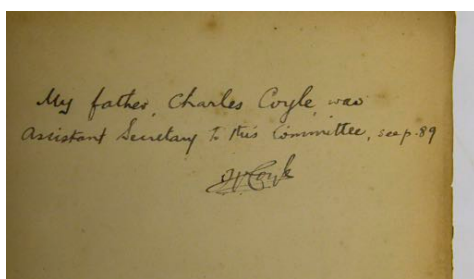 My father, Charles Coyle, was
Assistant Secretary to this Committee, see p. 89
Coyle